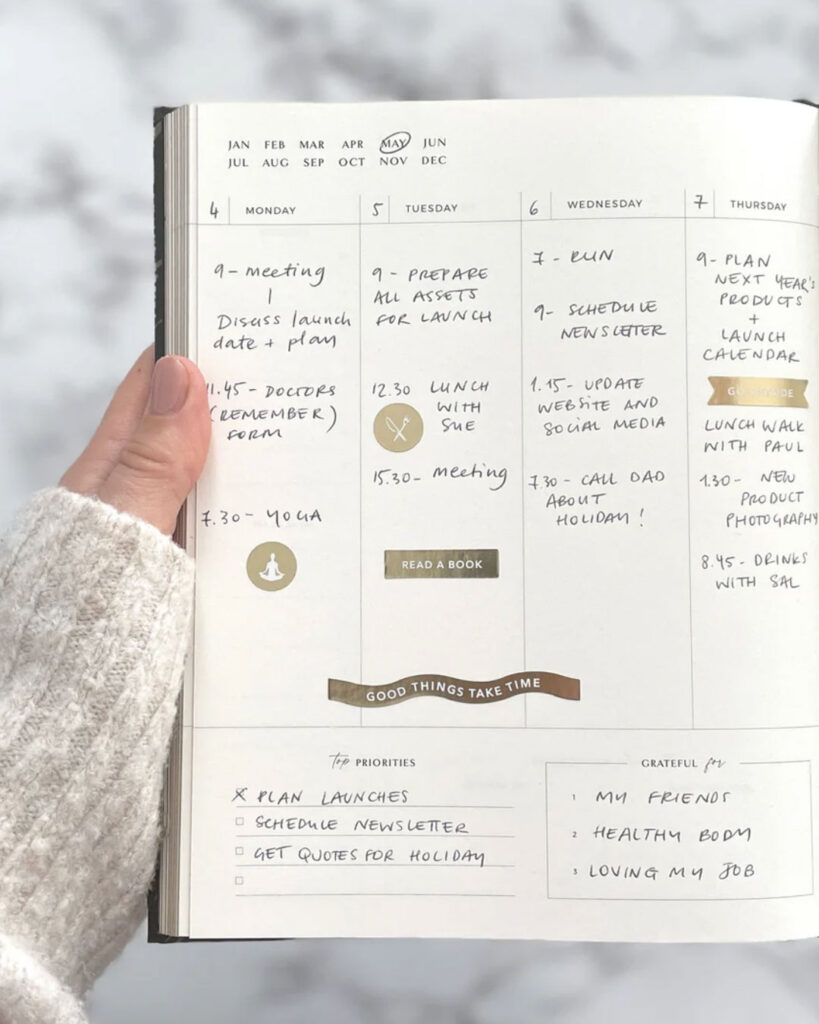 JAN FEB MAR APR MAY JUN
JUL AUG SEP OCT NOV DEC
4 MONDAY
9 - meeting
|
Discuss launch
date + plan
11.45 - DOCTORS
(REMEMBER)
FORM
7.30 - YOGA
5 TUESDAY
9 - PREPARE
ALL ASSETS
FOR LAUNCH
12.30 LUNCH
WITH
SUE
15.30 - meeting
READ A BOOK
6 WEDNESDAY
7 - RUN
9 - SCHEDULE
NEWSLETTER
1.15 - UPDATE
WEBSITE AND
SOCIAL MEDIA
7.30 - CALL DAD
ABOUT
HOLIDAY!
7 THURSDAY
9 - PLAN
NEXT YEAR'S
PRODUCTS
+
LAUNCH
CALENDAR
LUNCH WALK
WITH PAUL
1.30 - NEW
PRODUCT
PHOTOGRAPHY
8.45 - DRINKS
WITH SAL
GOOD THINGS TAKE TIME
top PRIORITIES
X PLAN LAUNCHES
SCHEDULE NEWSLETTER
GET QUOTES FOR HOLIDAY
GRATEFUL for
1 MY FRIENDS
2 HEALTHY BODY
3 LOVING MY JOB